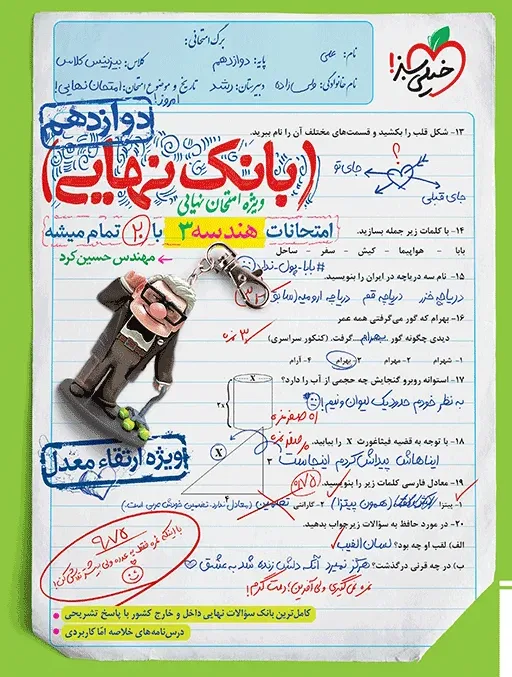 خیلی سبز!
برگ امتحانی:
نام: علی
پایه: دوازدهم
کلاس: بیزینس کلاس
نام خانوادگی:
دبیرستان: رشد
تاریخ و موضوع امتحان: امتحان نهایی!
امروز!
۱۳- شکل قلب را بکشید و قسمت‌های مختلف آن را نام ببرید.
دوازدهم
؟
جای تو
جای قبلی
(بانک نهایی)
ویژه امتحان نهایی
۱۴- با کلمات زیر جمله بسازید.
امتحانات هندسه ۳ با ۲۰ تمام میشه
بابا - هواپیما - کیش - سفر - ساحل
مهندس حسین کرد
#بابا-پول-ندارد
۱۵- نام سه دریاچه در ایران را بنویسید.
دریاچه خزر دریاچه قم دریاچه ارومیه (سابق)
۱۶- بهرام که گور می‌گرفتی همه عمر
دیدی چگونه گور بهرام گرفت. (کنکور سراسری)
۳ نمره
۱- شهرام ۲- مهرام ۳- بهرام ۴- آرام
۱۷- استوانه روبرو گنجایش چه حجمی از آب را دارد؟
X
۲x
به نظر خودم حدود یک لیوان و نیم!
۱۸- با توجه به قضیه فیثاغورث X را بیابید.
X
۳
۴
ایناهاش پیداش کردم اینجاست
ویژه ارتقاء معدل
۱۹- معادل فارسی کلمات زیر را بنویسید.
۰/۷۵
۱- پیتزا (همون پیتزا) ۲- گارانتی تضمین (معادل ندارد. تضمین خودش عربی است.)
۲۰- در مورد حافظ به سؤالات زیر جواب بدهید.
الف) لقب او چه بود؟ لسان الغیب
ب) در چه قرنی درگذشت؟ هرگز نمیرد آنکه دلش زنده شد به عشق
نمره نمی‌گیری ولی آفرین؛ دمت گرم!
۹/۷۵
کامل‌ترین بانک سؤالات نهایی داخل و خارج کشور با پاسخ تشریحی
درس‌نامه‌های خلاصه اما کاربردی